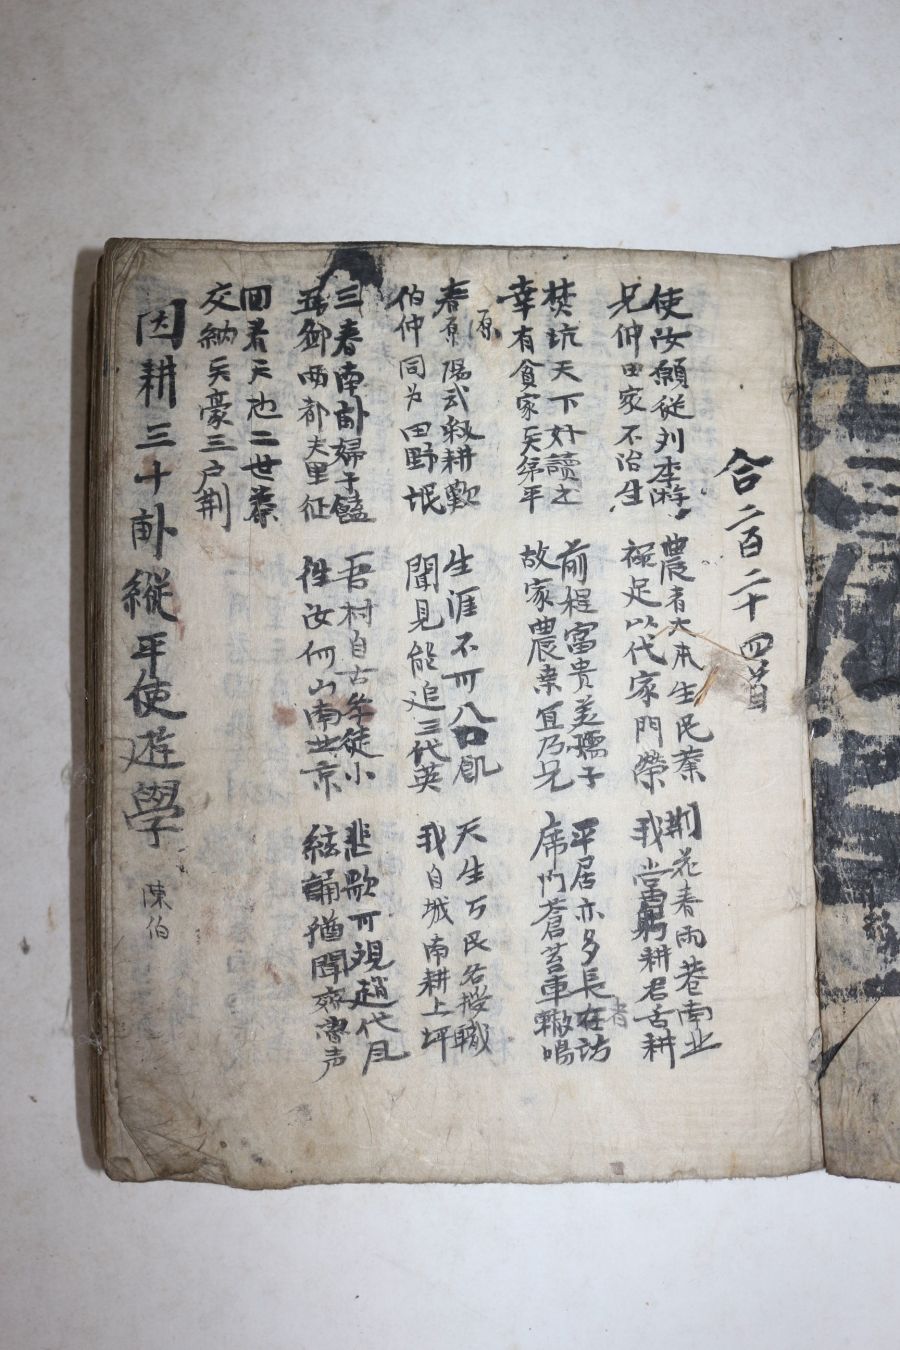 合二百二十四首
使汝願從列李游 農者大本生民蓁 荆花春雨巷南北
兄仲田家不治生 禄足以代家門榮 我當躬耕君舌耕
焚坑天下好讀之 前程富貴美孺子 平居亦多長者訪
幸有貪家兵弟平 故家農業宜乃兄 席門蒼苔車轍鳴
源
春原陽武叔耕歎 生涯不可八口飢 天生万民各授職
伯仲同为田野氓 聞見能追三代英 我自城南耕上坪
三春南畝婦子饁 吾村自古學徒小 悲歌可視趙代風
五鄉西都夫里征 往汝何山南 京 絃誦猶聞齊魯声
回看天地二世秦
交納天豪三户荆
因耕三十畝縱平使遊學 陳伯